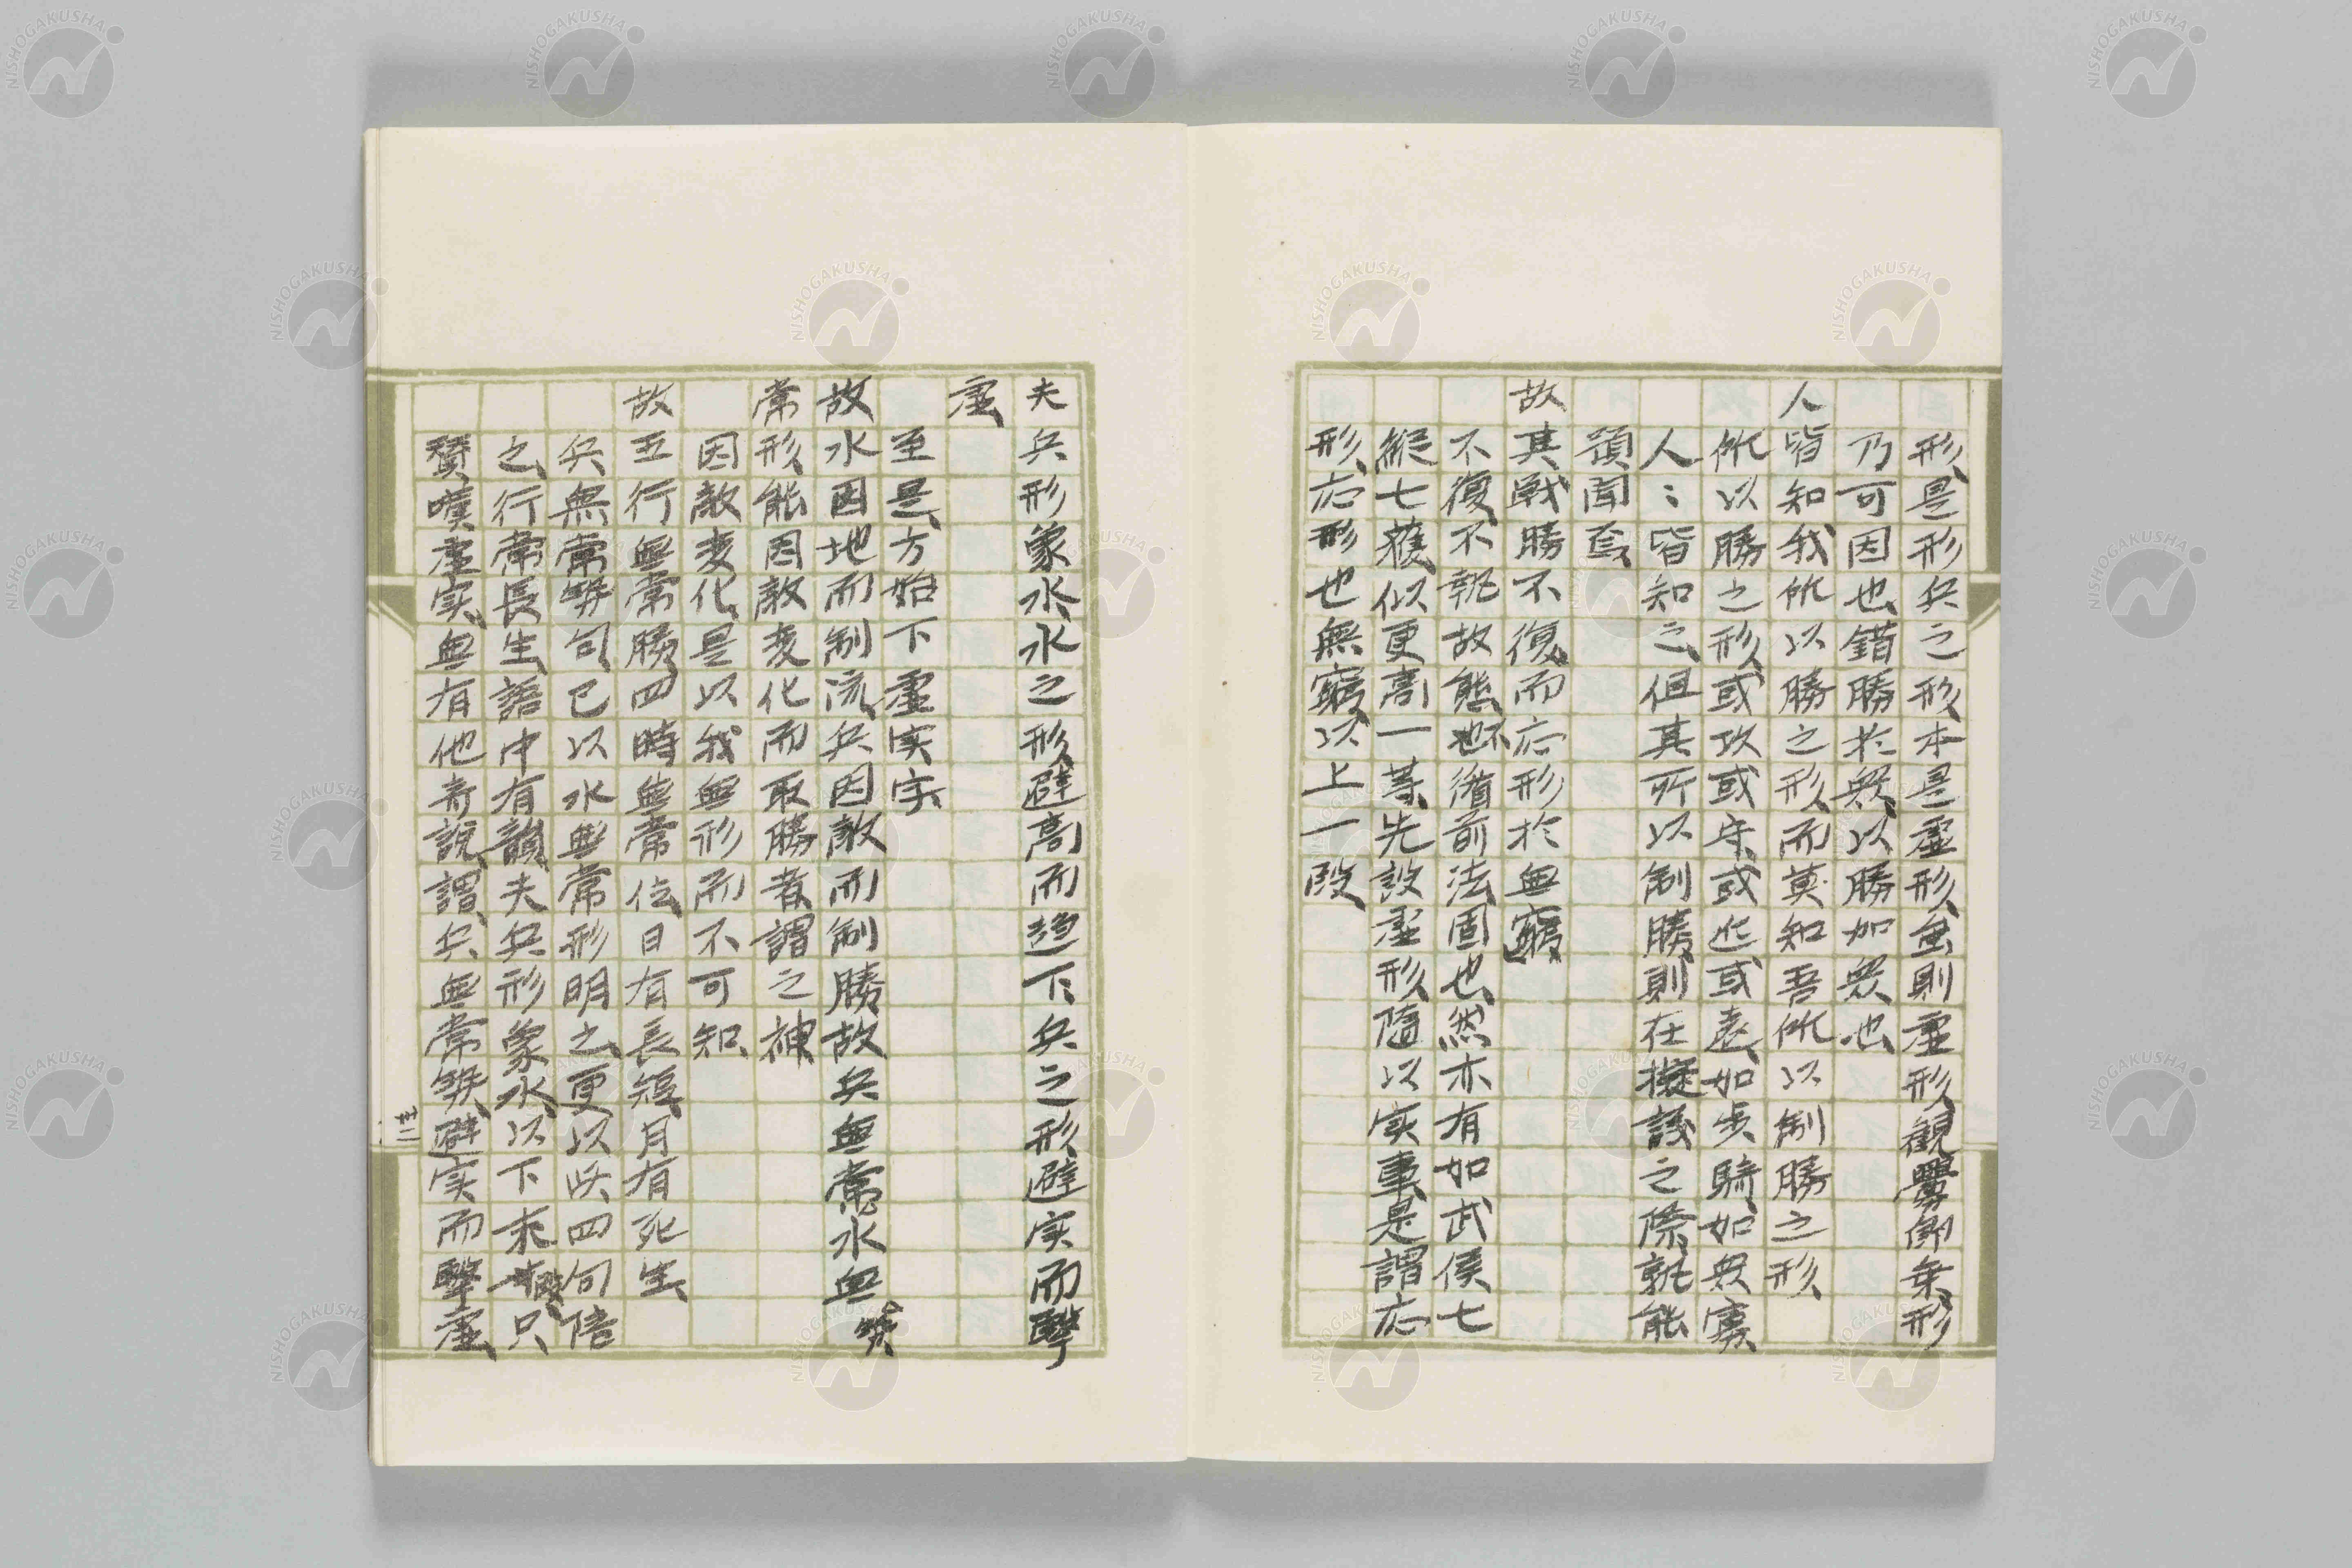 形、是形兵之形、本是虛形、無則虛形、観釁即無形
乃可因也、錯勝於衆、以勝加衆也、
人皆知我所以勝之形、而莫知吾所以制勝之形
所以勝之形、或攻或守或進或退、如步騎、如衆寡
人〻皆知之、但其所以制勝則在擬議之際、孰能
預聞焉、
故其戰勝不復、而応形於無窮
不復、不執故態也、不循前法固也、然亦有如武侯七
縦七獲、似更高一等、先設虛形、隨以実事、是謂応
形、応形也無窮、以上一段、
夫兵形象水、水之形避高而趨下、兵之形、避実而擊
虛、
至是、方始下虛実字
故水因地而制流、兵因敵而制勝、故兵無常勢、水無
常形、能因敵変化而取勝者、謂之神
因敵変化、是以我無形而不可知、
故五行無常勝、四時無常位、日有長短、月有死生、
兵無常勢句、已以水無常形明之、更以此四句陪
之、行常長生、語中有韻、夫兵形象水、以下求 只
賛嘆虛実、無有他奇説、謂、兵無常勢、避実而擊虛、